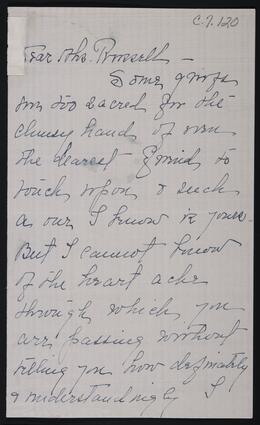 C.7.120
Dear Mrs. Russell -
Some griefs
are too sacred for the
clumsy hand of even
the dearest friend to
touch upon & such
a one I know is yours
But I cannot know
of the heart ache
through which you
are passing without
telling you how definitely
& understandingly I